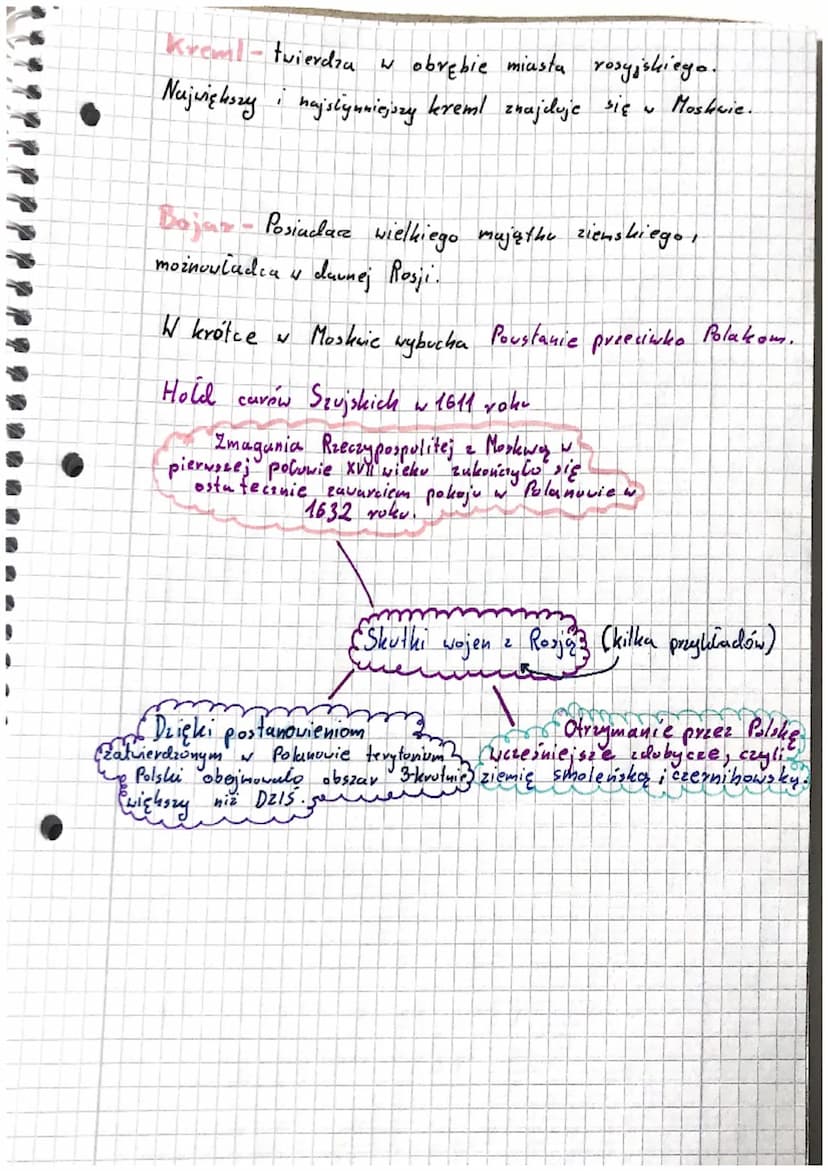 Kreml - twierdza w obrębie miasta rosyjskiego.
Największy i najsłynniejszy kreml znajduje się w Moskwie.
Bojar - Posiadacz wielkiego majątku ziemskiego,
możnowładca w dawnej Rosji.
W krótce w Moskwie wybucha Powstanie przeciwko Polakom.
Hołd carów Szujskich w 1611 roku
Zmagania Rzeczypospolitej z Moskwą w
pierwszej połowie XVII wieku zakończyło się
ostatecznie zawarciem pokoju w Polanowie w
1632 roku.
Skutki wojen z Rosją (kilka przykładów)
Dzięki postanowieniom
zatwierdzonym w Polanowie terytorium
Polski obejmowało obszar 3-krotnie
większy niż DZIŚ.
Otrzymanie przez Polskę
wcześniejsze zdobycze, czyli
ziemię smoleńską i czernihowską.